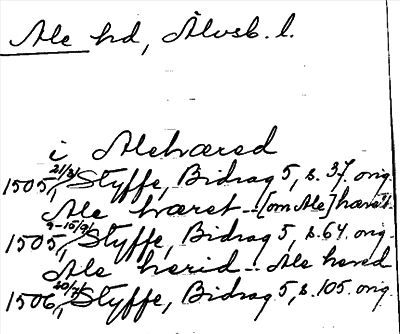 Ale hd, Älvsb. l.
i Alehæred
1505 21/3, Styffe, Bidrag 5, s. 37. orig.
Ale hæret -- [om Ale] hæret
1505, 9-15/9, Styffe, Bidrag 5, s. 64. orig.
Ale herid -- Ale hered
1506, Styffe, Bidrag 5, s. 105. orig.